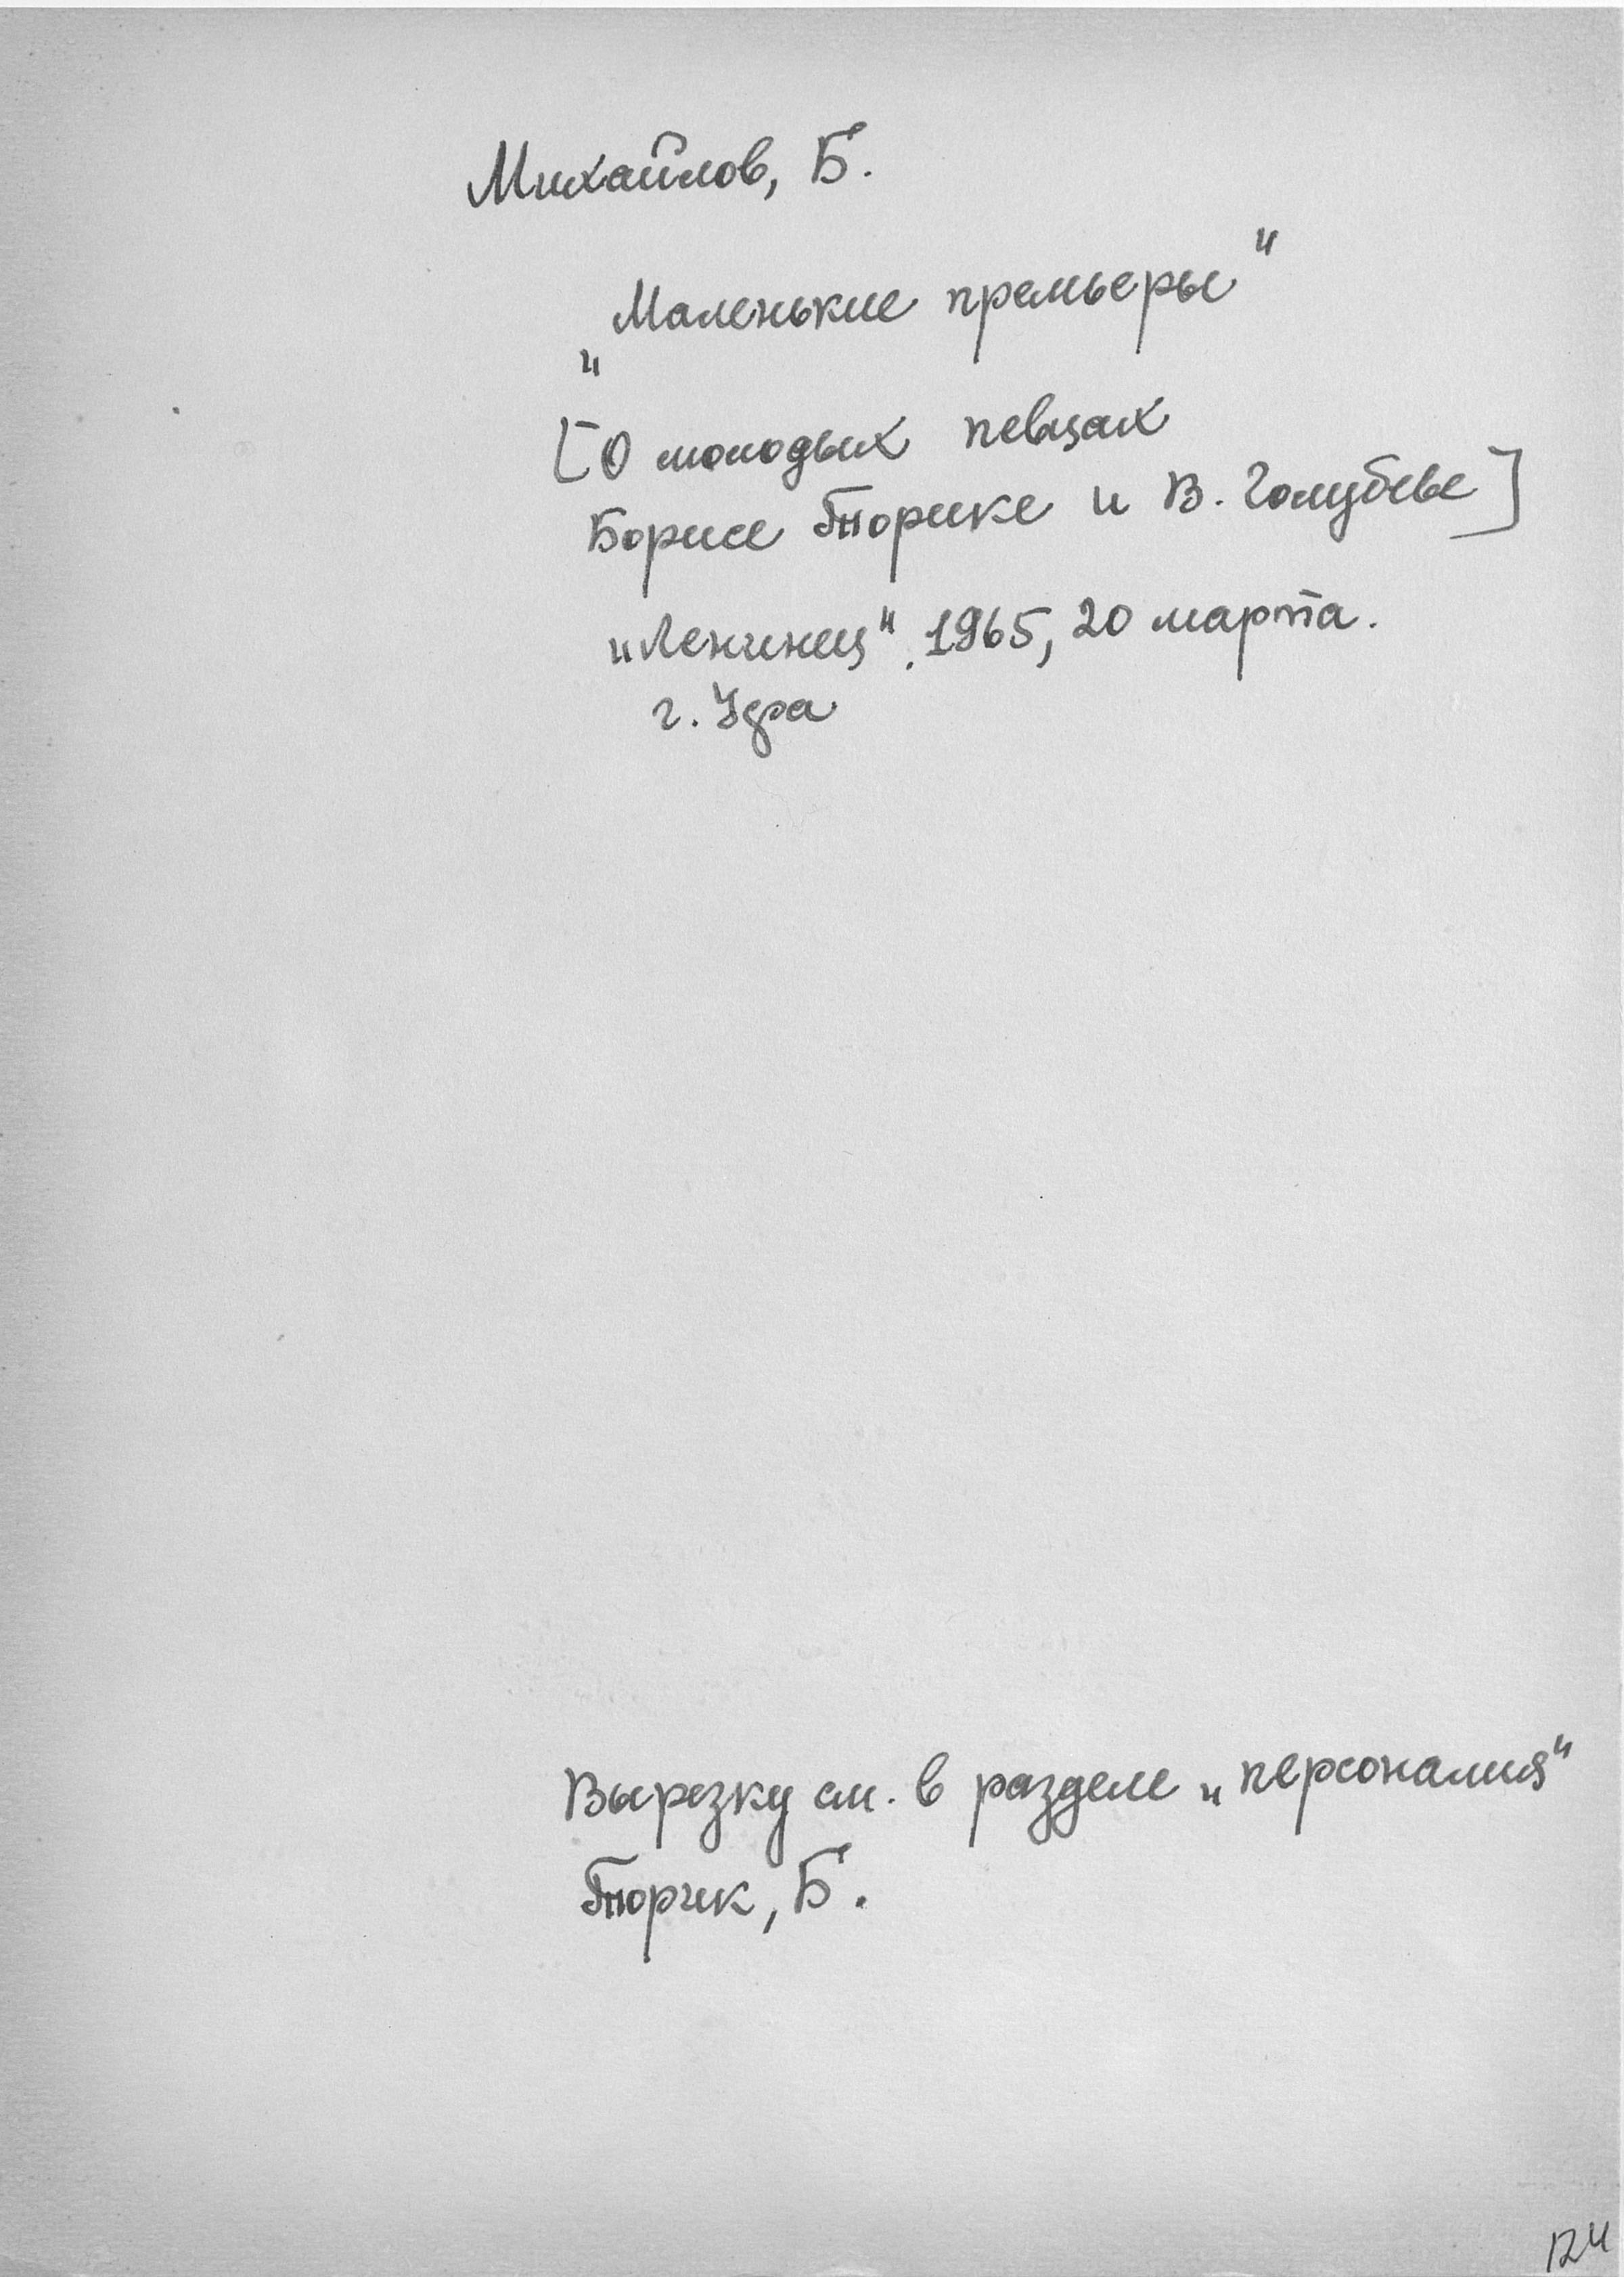 Михайлов, Б.
„Маленькие премьеры"
[О молодых певцах
Борисе Торике и В. Голубеве]
„Ленинец". 1965, 20 марта.
г. Уфа
Вырезку см. в разделе „персоналия"
Торик, Б.
124